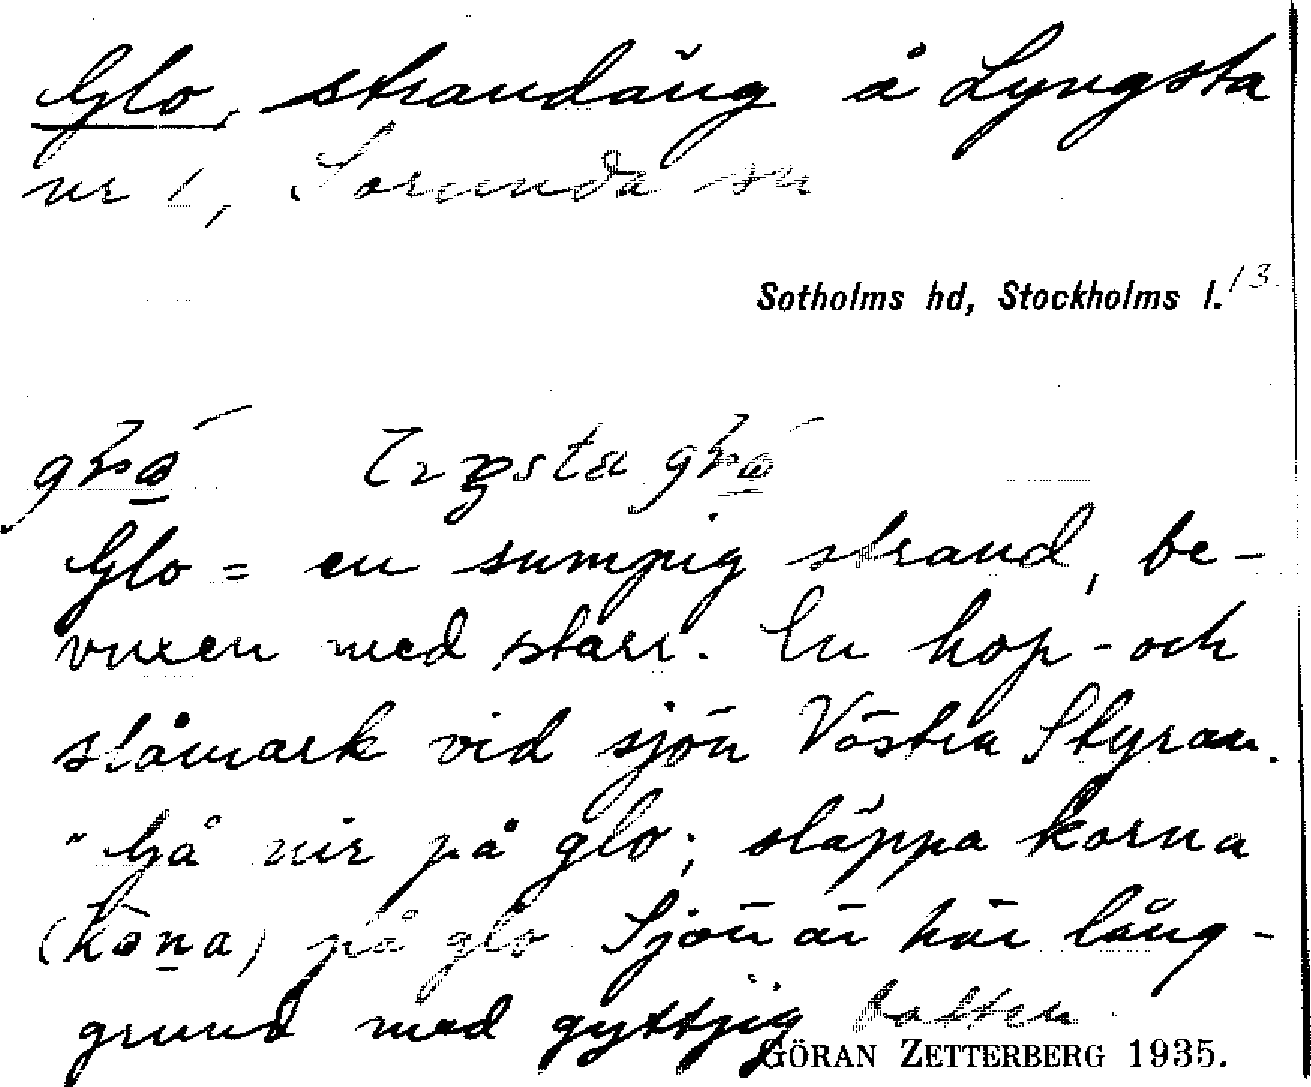 Glo, strandäng å Lyngsta
nr 1, Sorunda sn
Sotholms hd, Stockholms l. 13.
Glo = en sumpig strand, be-
vuxen med starr. En hop- och
slåmark vid sjön Västra Styran.
"Gå nir på glo; släppa korna
(kōna) på glo. Sjön är här lång-
grund med gyttjig botten.
GÖRAN ZETTERBERG 1935.